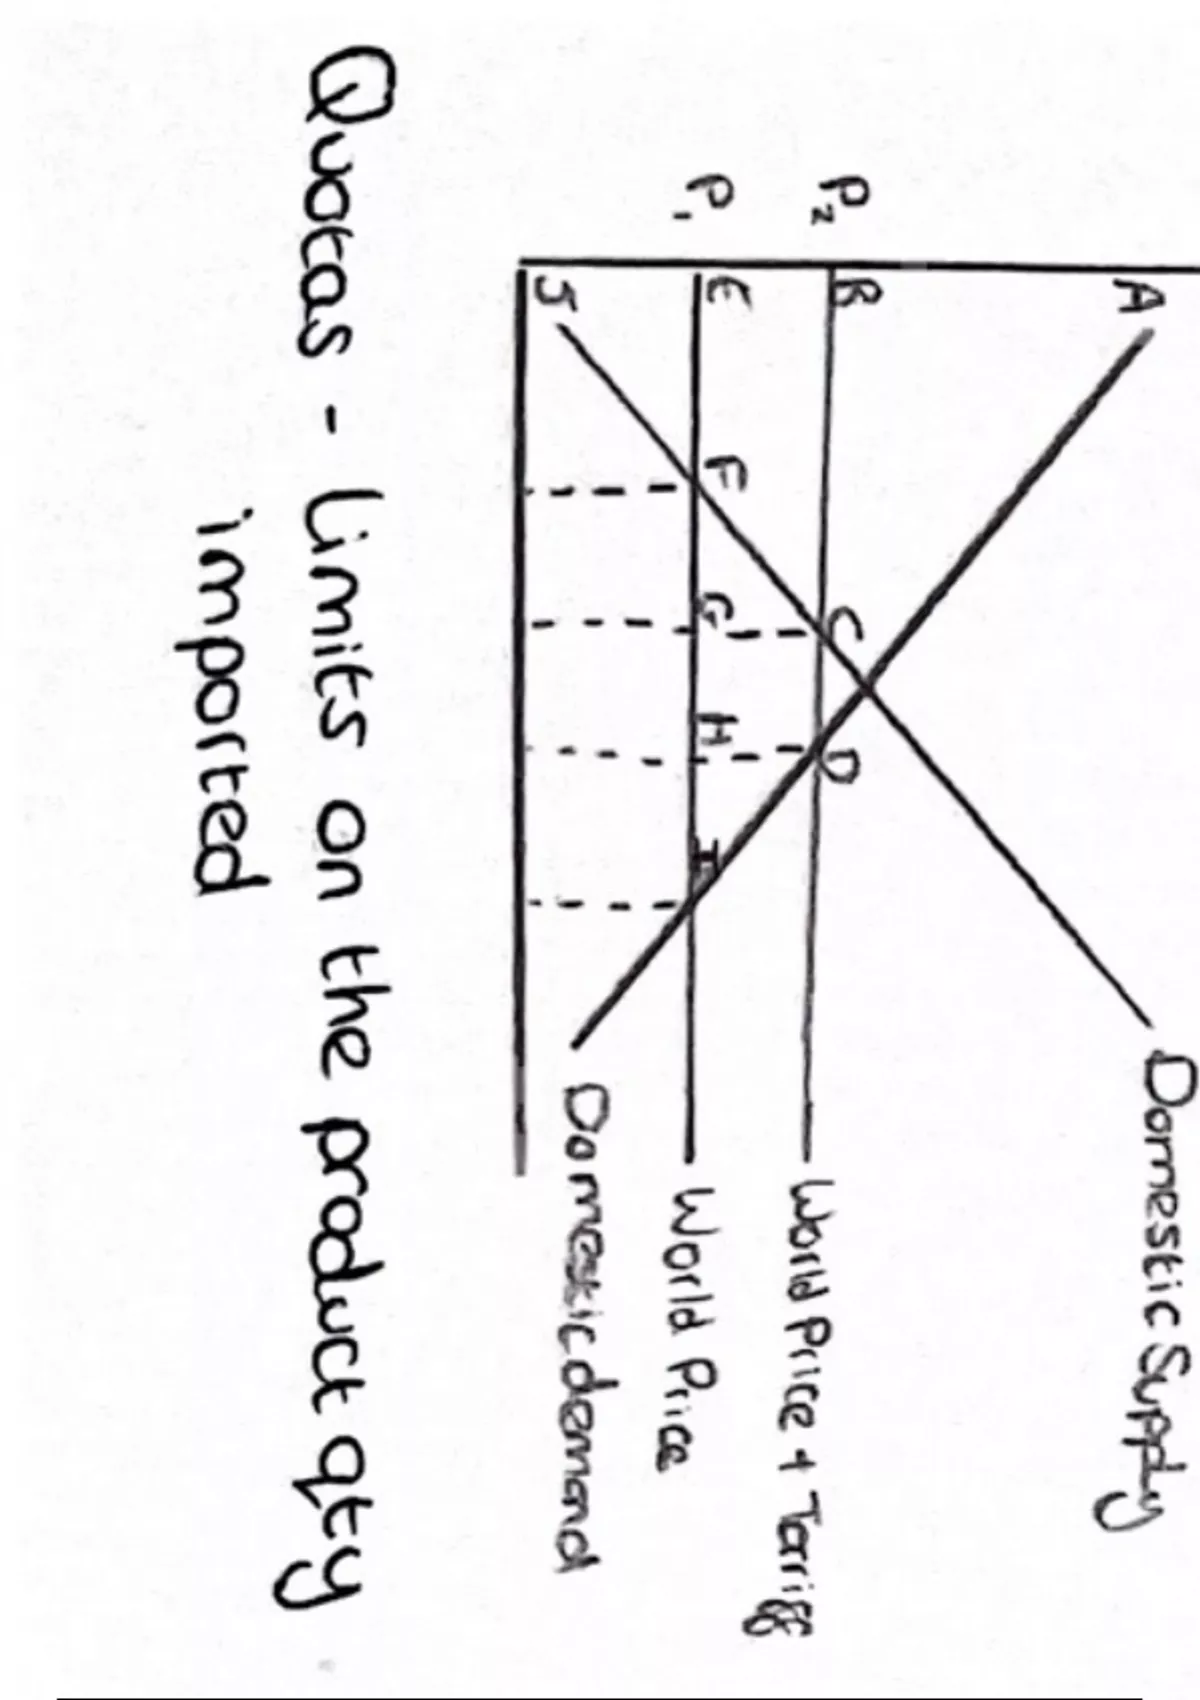 A
Domestic Supply
P2
B
C
D
World Price + Tarriff
P1
E
F
G
H
I
World Price
J
Domestic demand
Quotas - limits on the product qty
imported